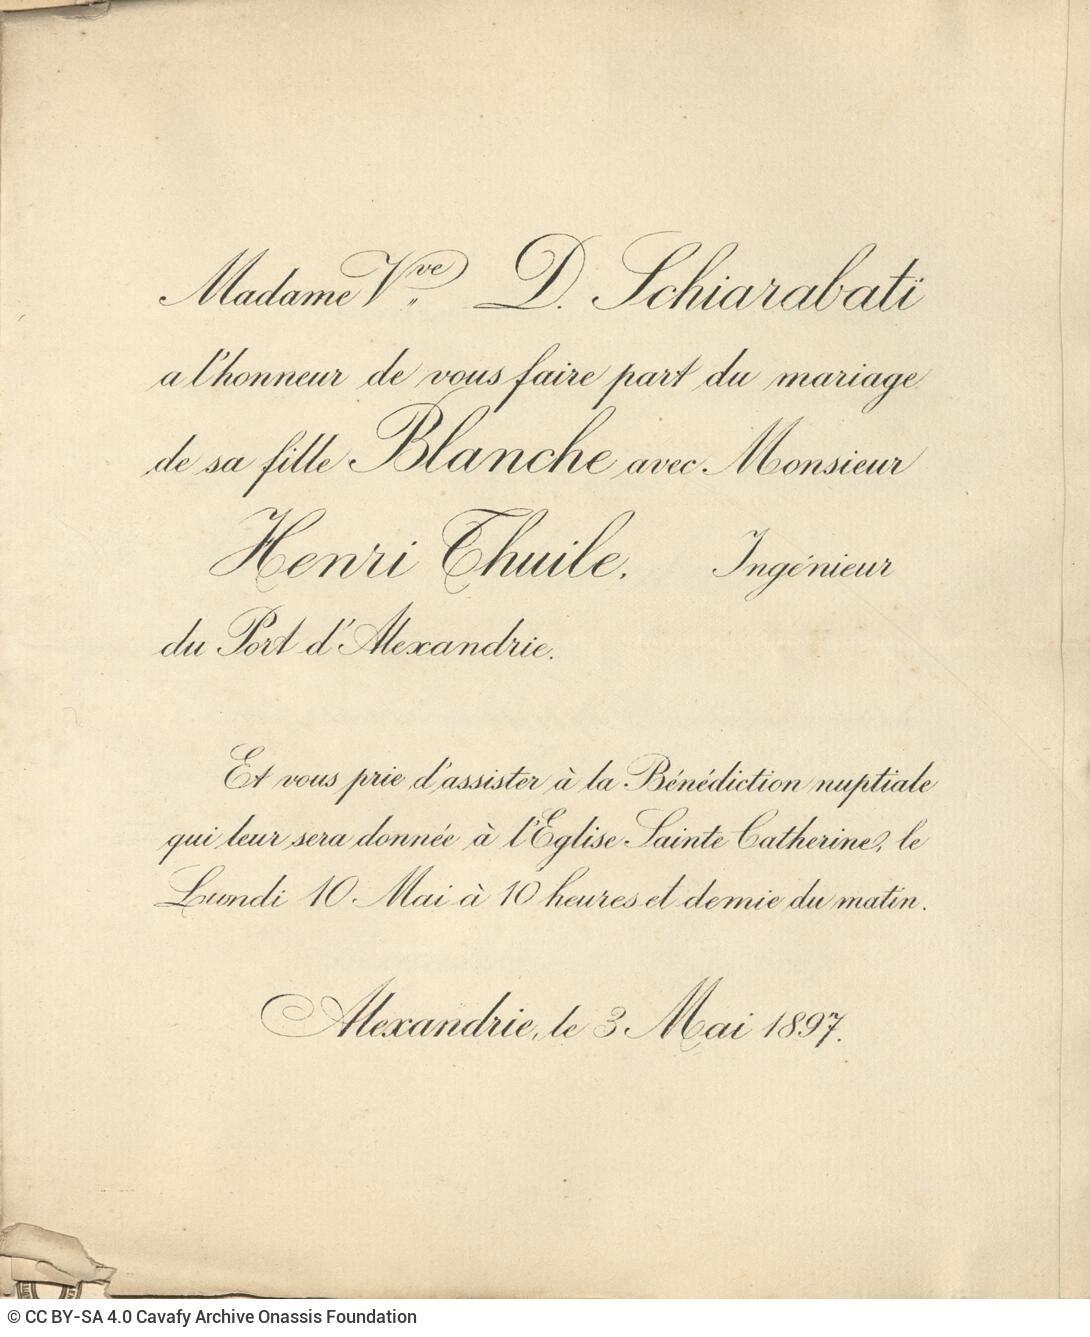 Madame Vve D. Schiarabati
a l'honneur de vous faire part du mariage
de sa fille Blanche avec Monsieur
Henri Thuile, Ingénieur
du Port d'Alexandrie.
Et vous prie d'assister à la Bénédiction nuptiale
qui leur sera donnée à l'Eglise Sainte Catherine, le
Lundi 10 Mai à 10 heures et demie du matin.
Alexandrie, le 3 Mai 1897.
© CC BY-SA 4.0 Cavafy Archive Onassis Foundation